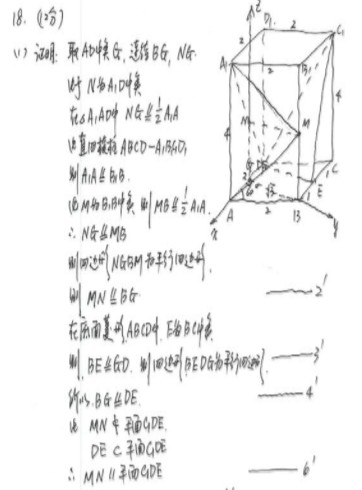 18. (12分)
(1) 证明: 取AD中点G, 连接BG, NG.
由于N为A₁D中点
在△A₁AD中 NG∥=½A₁A
由直四棱柱ABCD-A₁B₁C₁D₁
则A₁A∥=B₁B.
由M为B₁B中点 则MB∥=½A₁A.
∴ NG∥=MB
则四边形NGBM为平行四边形,
则 MN∥=BG 2'
在底面菱形ABCD中, E为BC中点
则 BE∥=GD. 则四边形BEDG为平行四边形. 3'
所以BG∥=DE. 4'
由 MN⊄平面C₁DE
DE⊂平面C₁DE
∴ MN∥平面C₁DE 6'
z
D₁
2
C₁
A₁
2
B₁
2
4
N
M
4
4
G
D
C
60°
√3
E
A
2
B
x
y